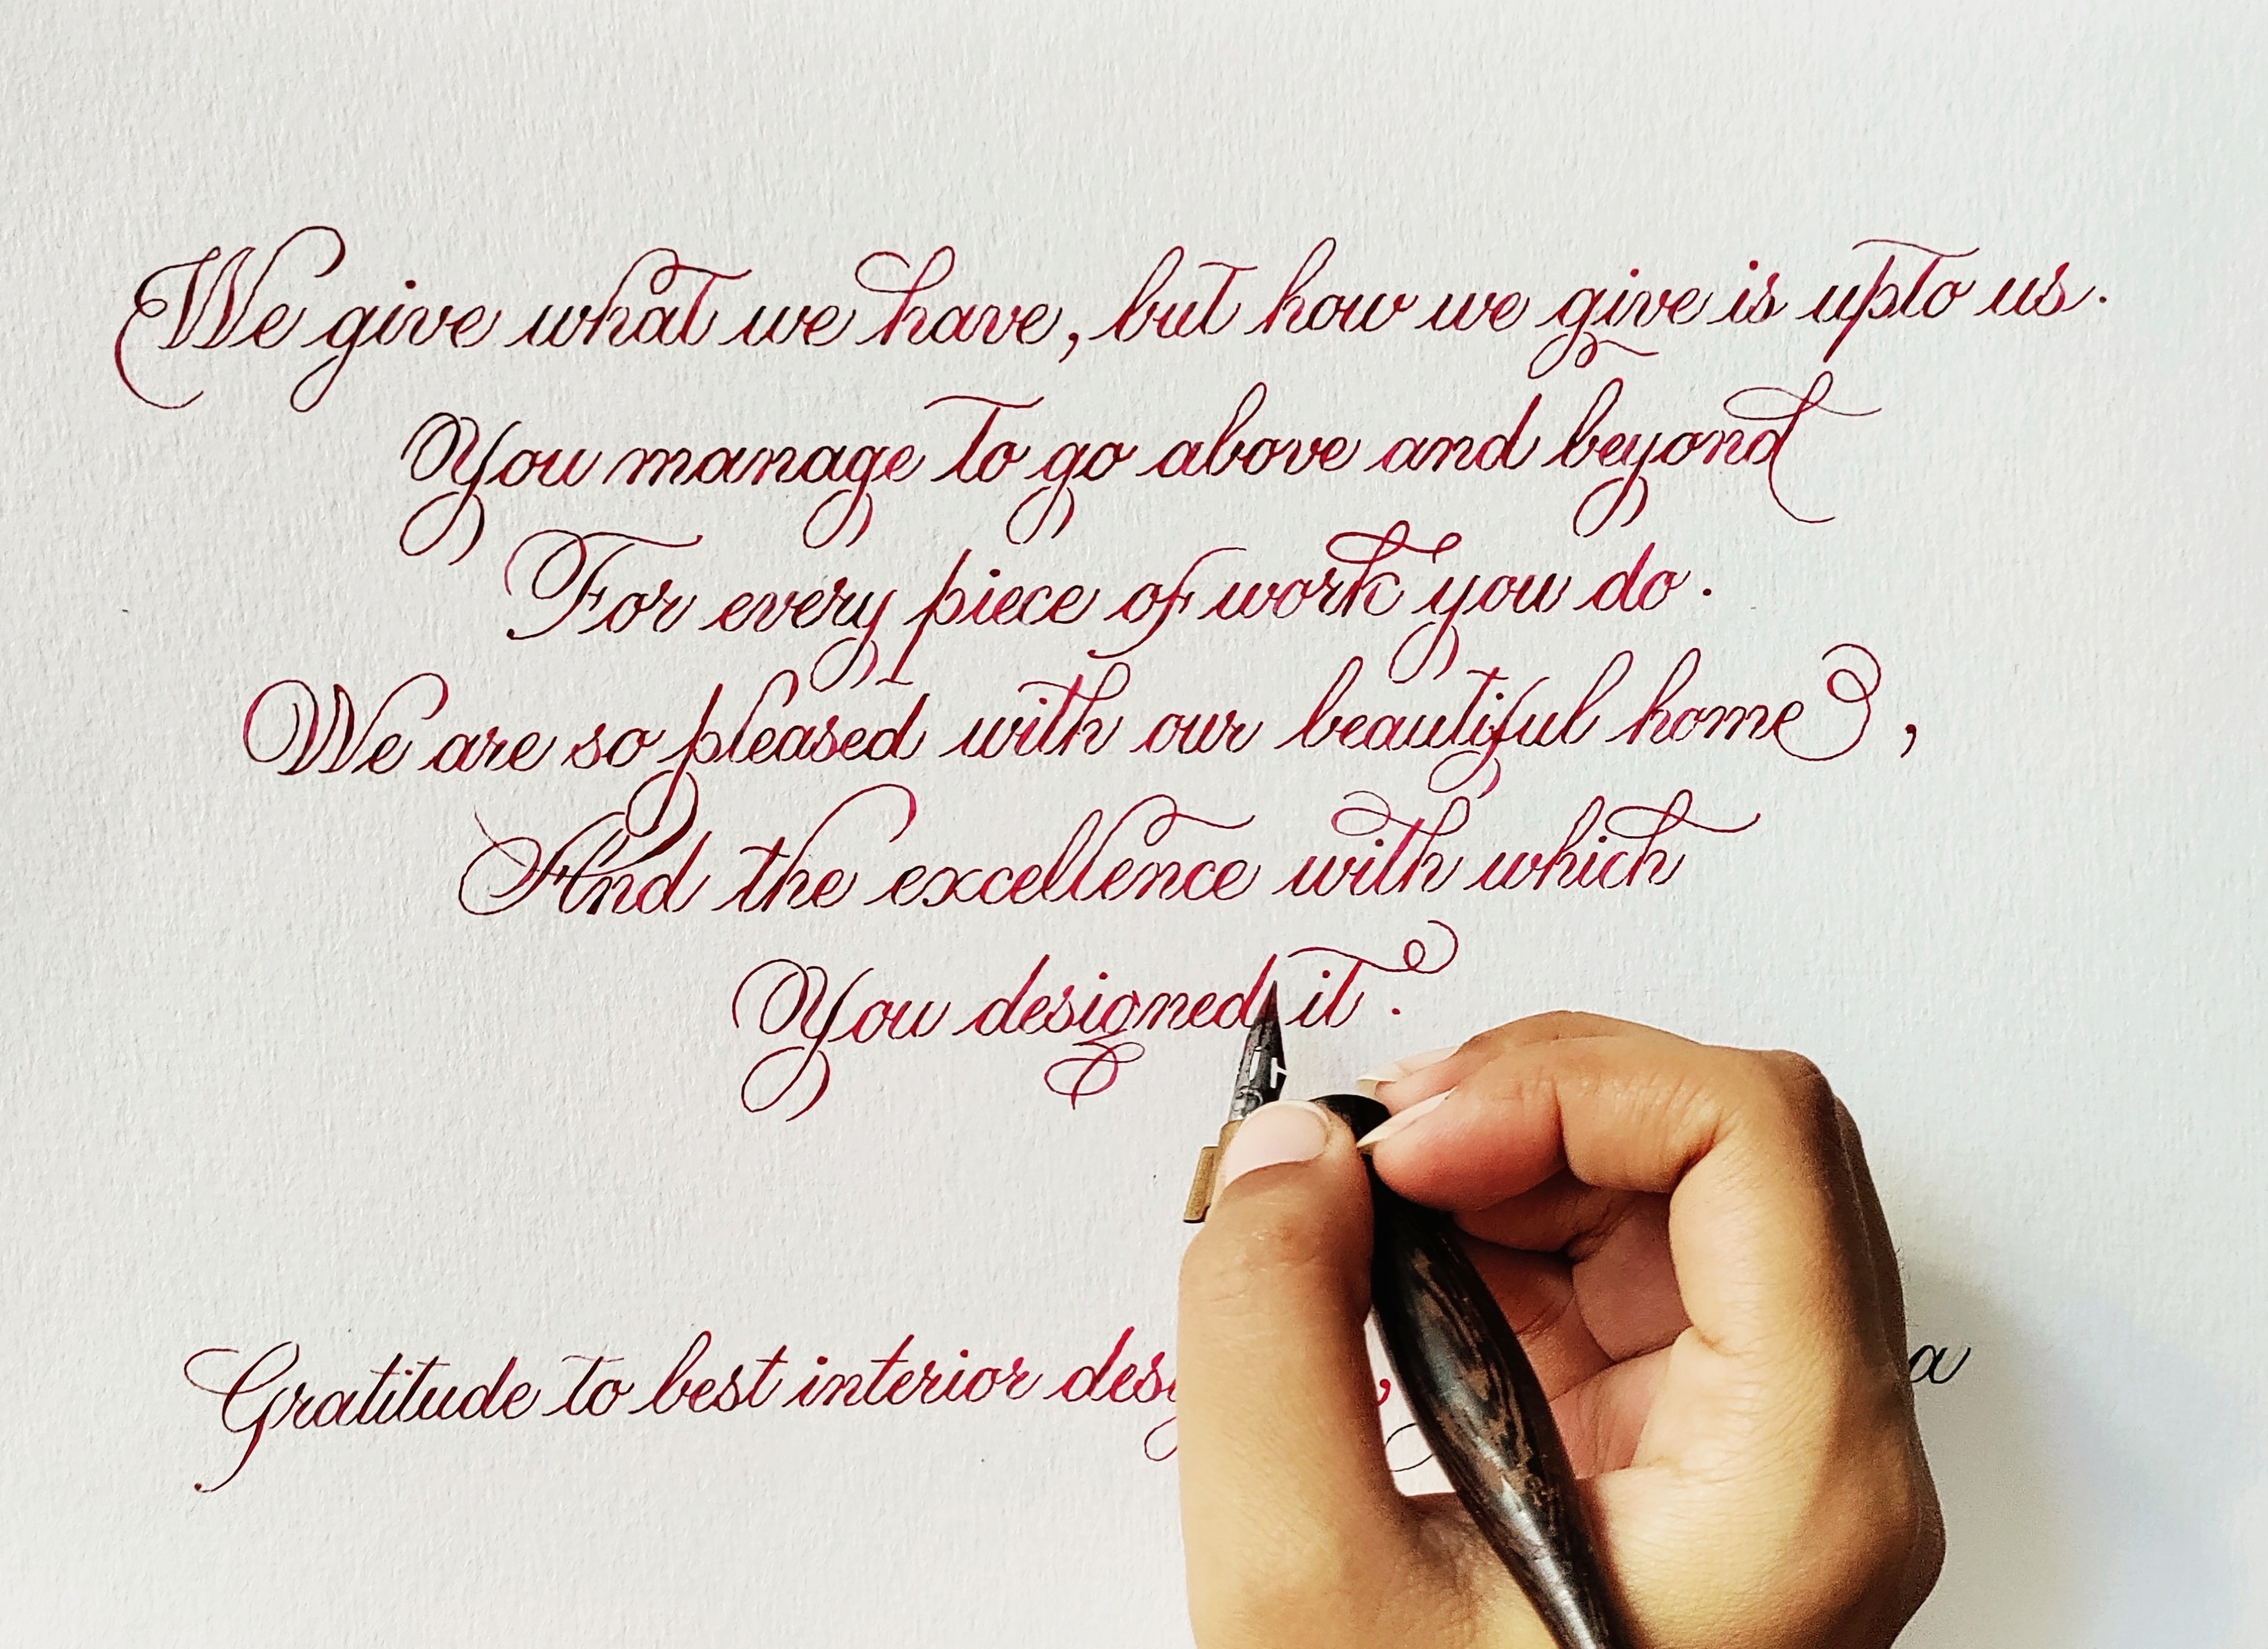 We give what we have, but how we give is upto us.
You manage to go above and beyond
For every piece of work you do.
We are so pleased with our beautiful home,
And the excellence with which
You designed it.
Gratitude to best interior